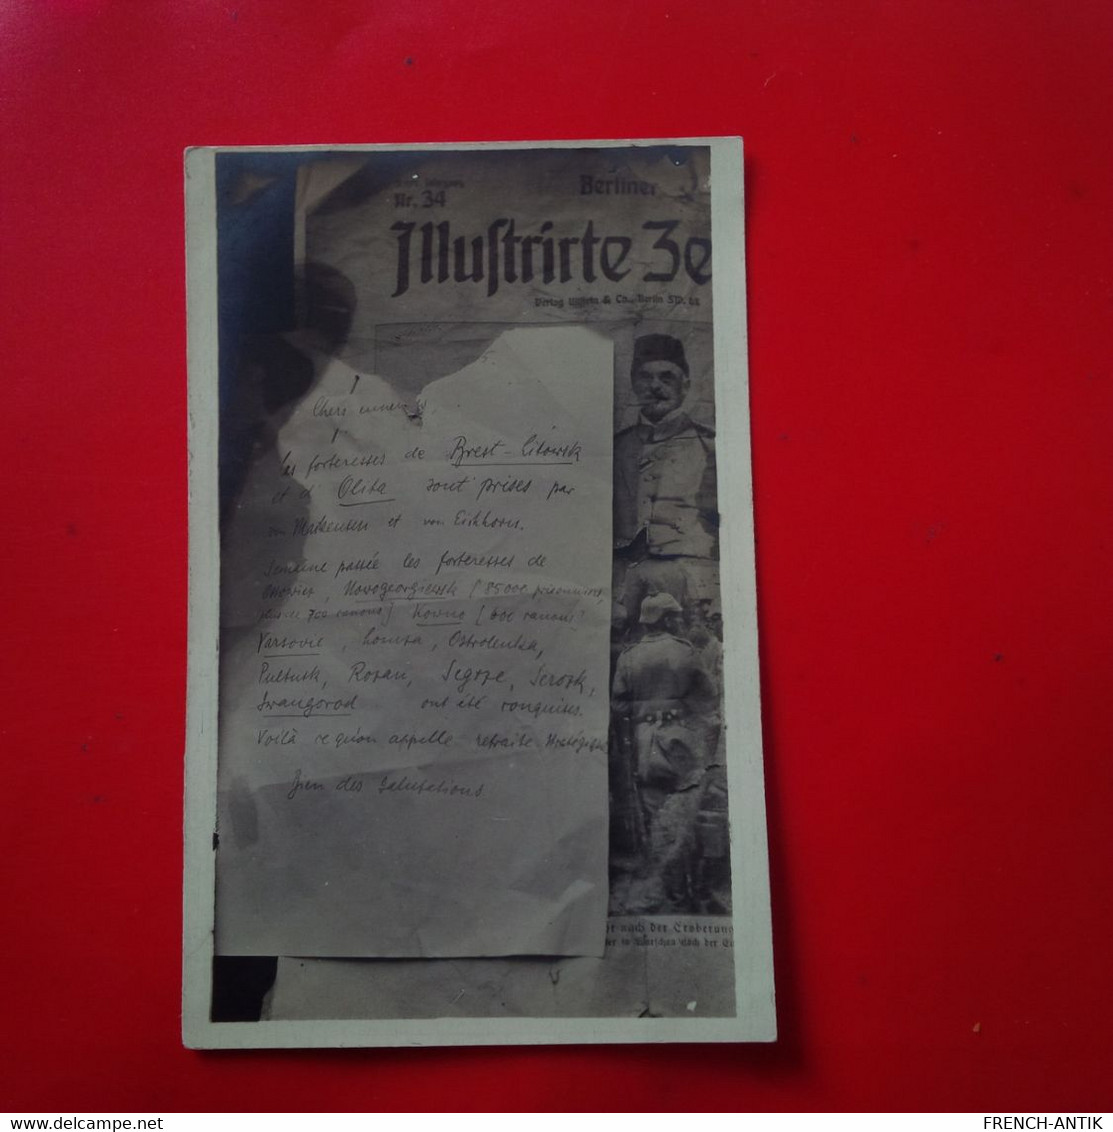 Nr. 34
Berliner
Illustrirte Ze
Verlag Ullstein & Co., Berlin SW. 68
Chers ennemis,
Les forteresses de Brest-Litowsk
et d'Olita sont prises par
von Mackensen et von Eichhorn.
Semaine passée les forteresses de
Ossowiez, Nowogeorgiewsk (85000 prisonniers,
plus de 700 canons) Kovno [400 canons]
Varsovie, Lomza, Ostrolenka,
Pultusk, Rozan, Segrze, Serozk,
Iwangorod ont été conquises.
Voilà ce qu'on appelle retraite stratégique
Bien des salutations
nach der Eroberung
in Warschau nach der
FRENCH-ANTIK